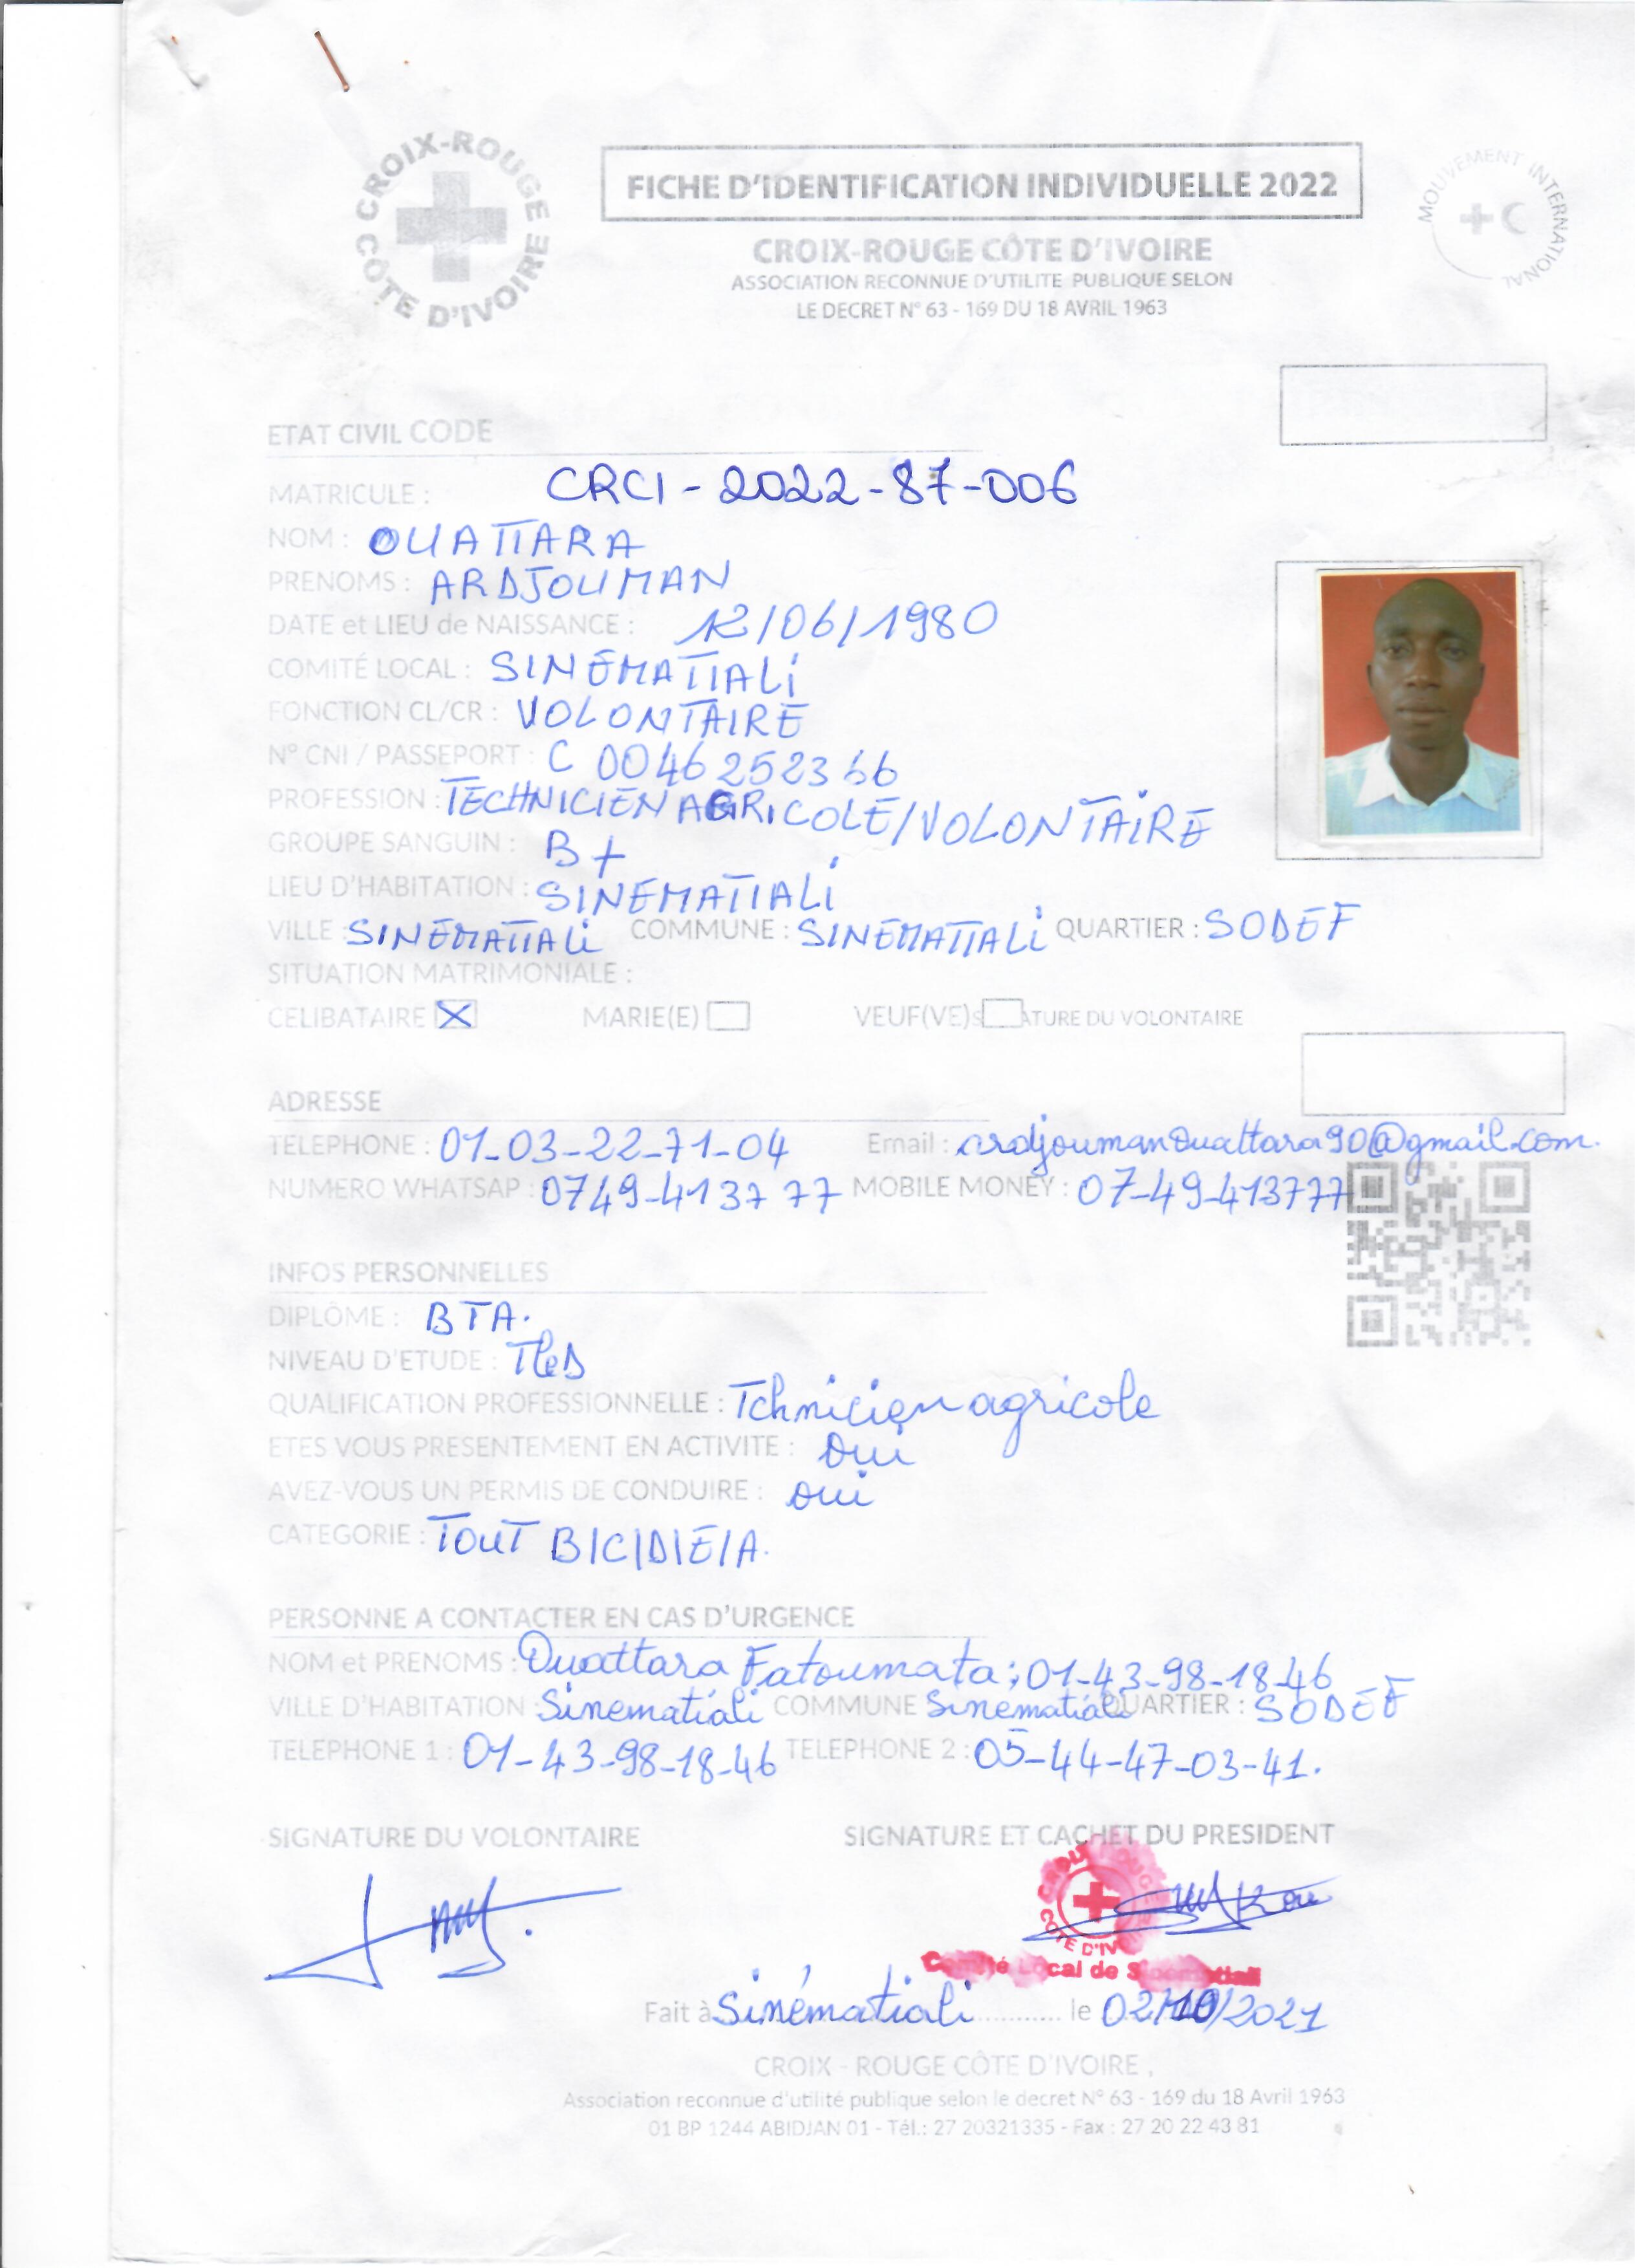 CROIX-ROUGE CÔTE D'IVOIRE
FICHE D'IDENTIFICATION INDIVIDUELLE 2022
MOUVEMENT INTERNATIONAL
CROIX-ROUGE CÔTE D'IVOIRE
ASSOCIATION RECONNUE D'UTILITE PUBLIQUE SELON
LE DECRET N° 63 - 169 DU 18 AVRIL 1963
ETAT CIVIL CODE
MATRICULE : CRCI - 2022 - 87 - 006
NOM : OUATTARA
PRENOMS : ARDJOUMAN
DATE et LIEU de NAISSANCE : 12/06/1980
COMITÉ LOCAL : SINEMATIALI
FONCTION CL/CR : VOLONTAIRE
N° CNI / PASSEPORT : C 0046252366
PROFESSION : TECHNICIEN AGRICOLE/VOLONTAIRE
GROUPE SANGUIN : B+
LIEU D'HABITATION : SINEMATIALI
VILLE : SINEMATIALI COMMUNE : SINEMATIALI QUARTIER : SODEF
SITUATION MATRIMONIALE :
CELIBATAIRE X MARIE(E) VEUF(VE) ATURE DU VOLONTAIRE
ADRESSE
TELEPHONE : 01-03-22-71-04 Email : ardjoumanouattara90@gmail.com.
NUMERO WHATSAP : 0749-413777 MOBILE MONEY : 07-49-413777
INFOS PERSONNELLES
DIPLÔME : BTA.
NIVEAU D'ETUDE : TleD
QUALIFICATION PROFESSIONNELLE : Tchnicien agricole
ETES VOUS PRESENTEMENT EN ACTIVITE : oui
AVEZ-VOUS UN PERMIS DE CONDUIRE : oui
CATEGORIE : TOUT B/C/D/E/A.
PERSONNE A CONTACTER EN CAS D'URGENCE
NOM et PRENOMS : Ouattara Fatoumata; 01-43-98-18-46
VILLE D'HABITATION : Sinematiali COMMUNE Sinematiali QUARTIER : SODEF
TELEPHONE 1 : 01-43-98-18-46 TELEPHONE 2 : 05-44-47-03-41.
SIGNATURE DU VOLONTAIRE SIGNATURE ET CACHET DU PRESIDENT
Comité Local de Sinematiali
Fait à Sinématiali ........... le 02/10/2021
CROIX - ROUGE CÔTE D'IVOIRE ,
Association reconnue d'utilité publique selon le decret N° 63 - 169 du 18 Avril 1963
01 BP 1244 ABIDJAN 01 - Tél.: 27 20321335 - Fax : 27 20 22 43 81